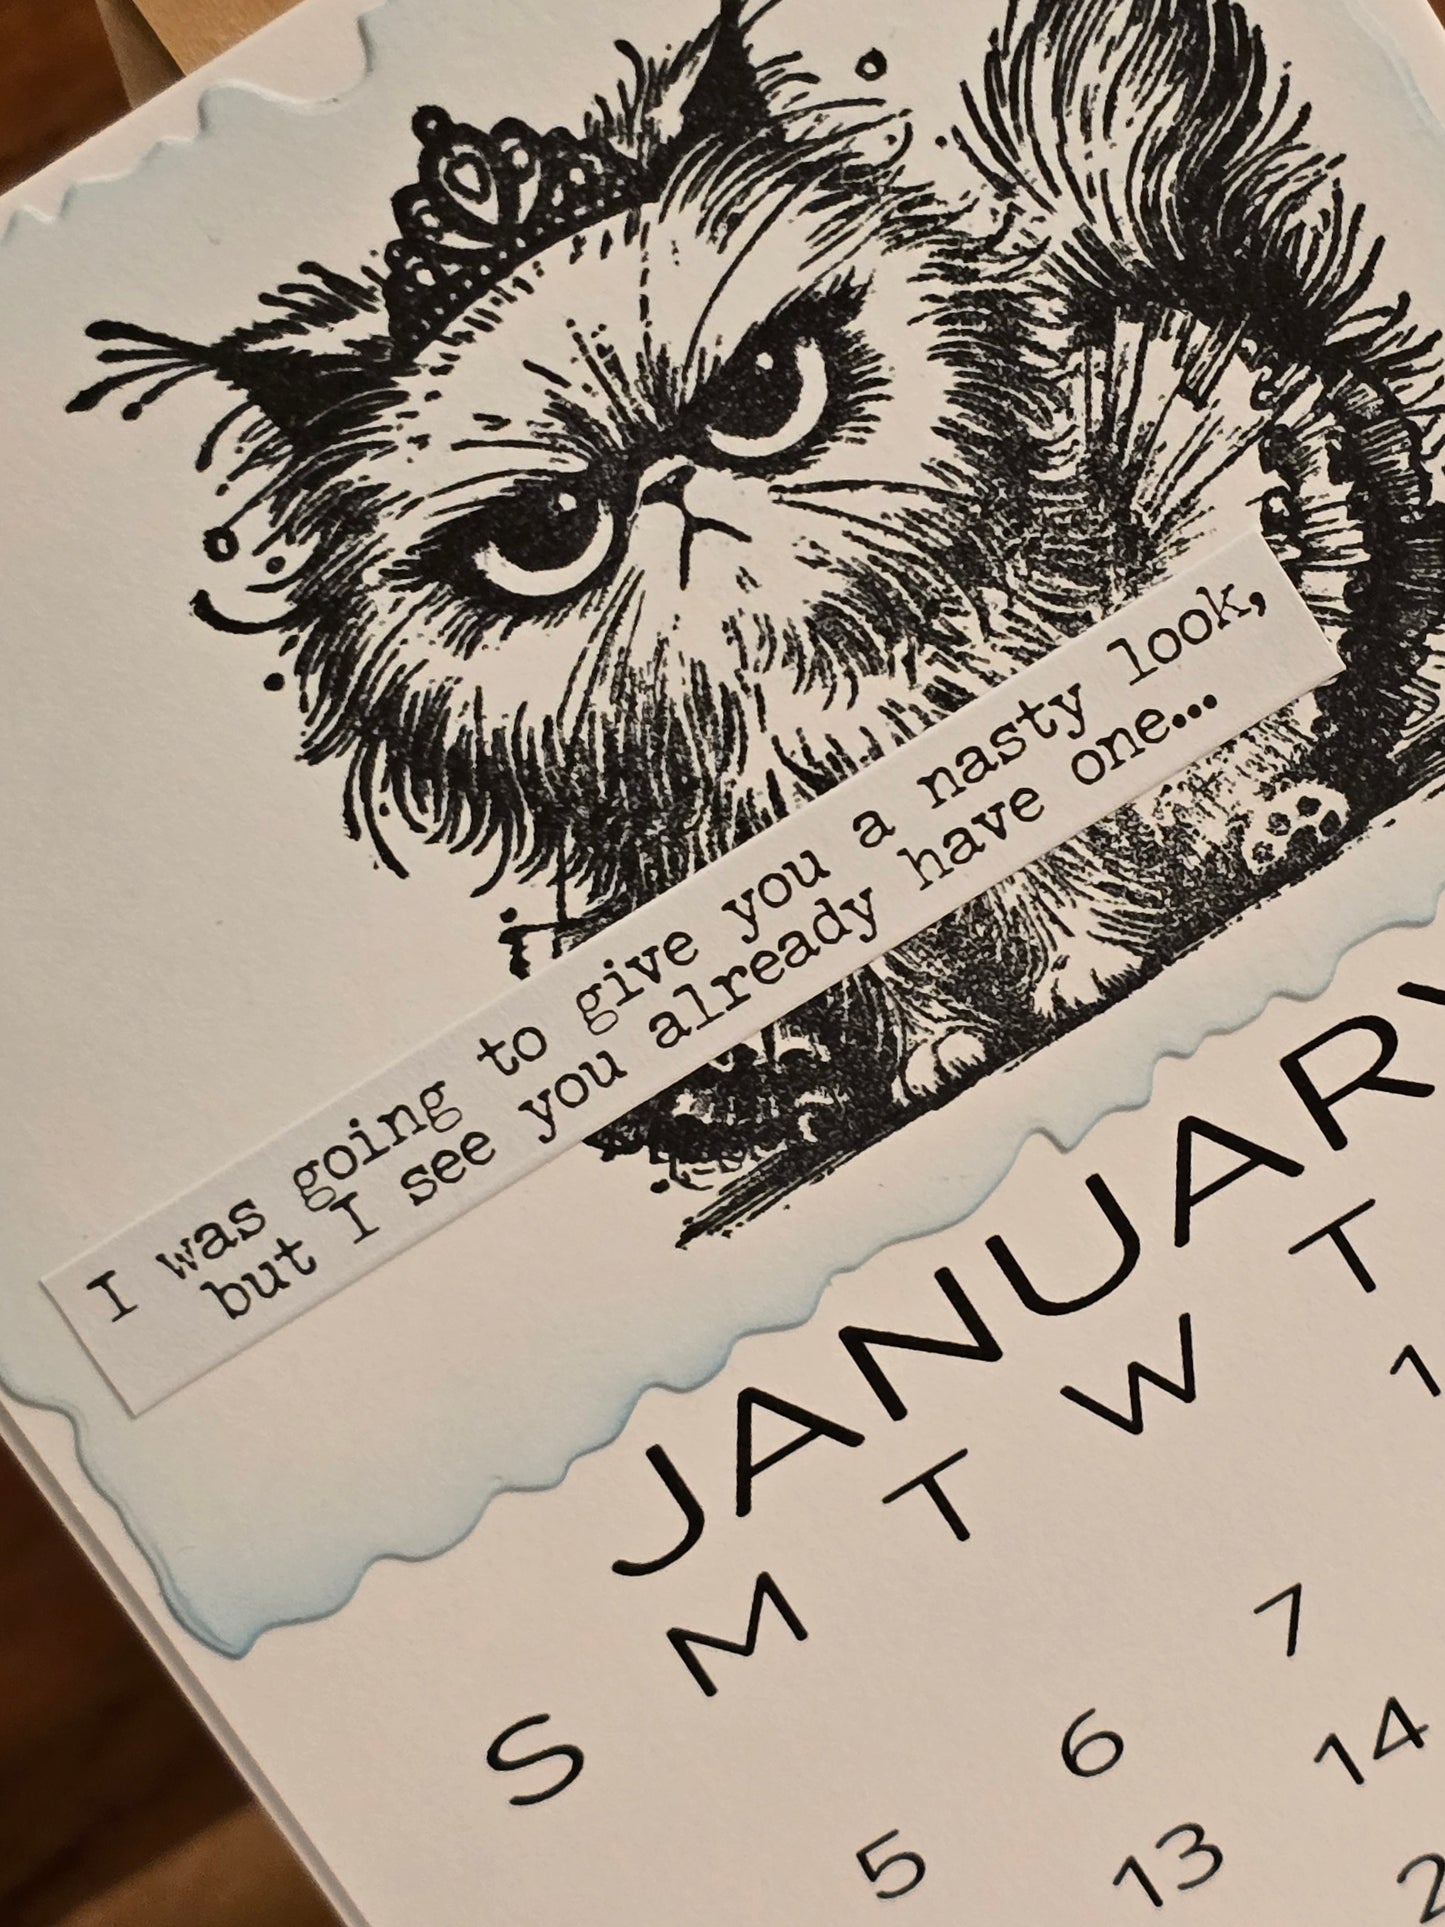 I was going to give you a nasty look,
but I see you already have one...
JANUARY
S M T W T
1
5 6 7
13 14